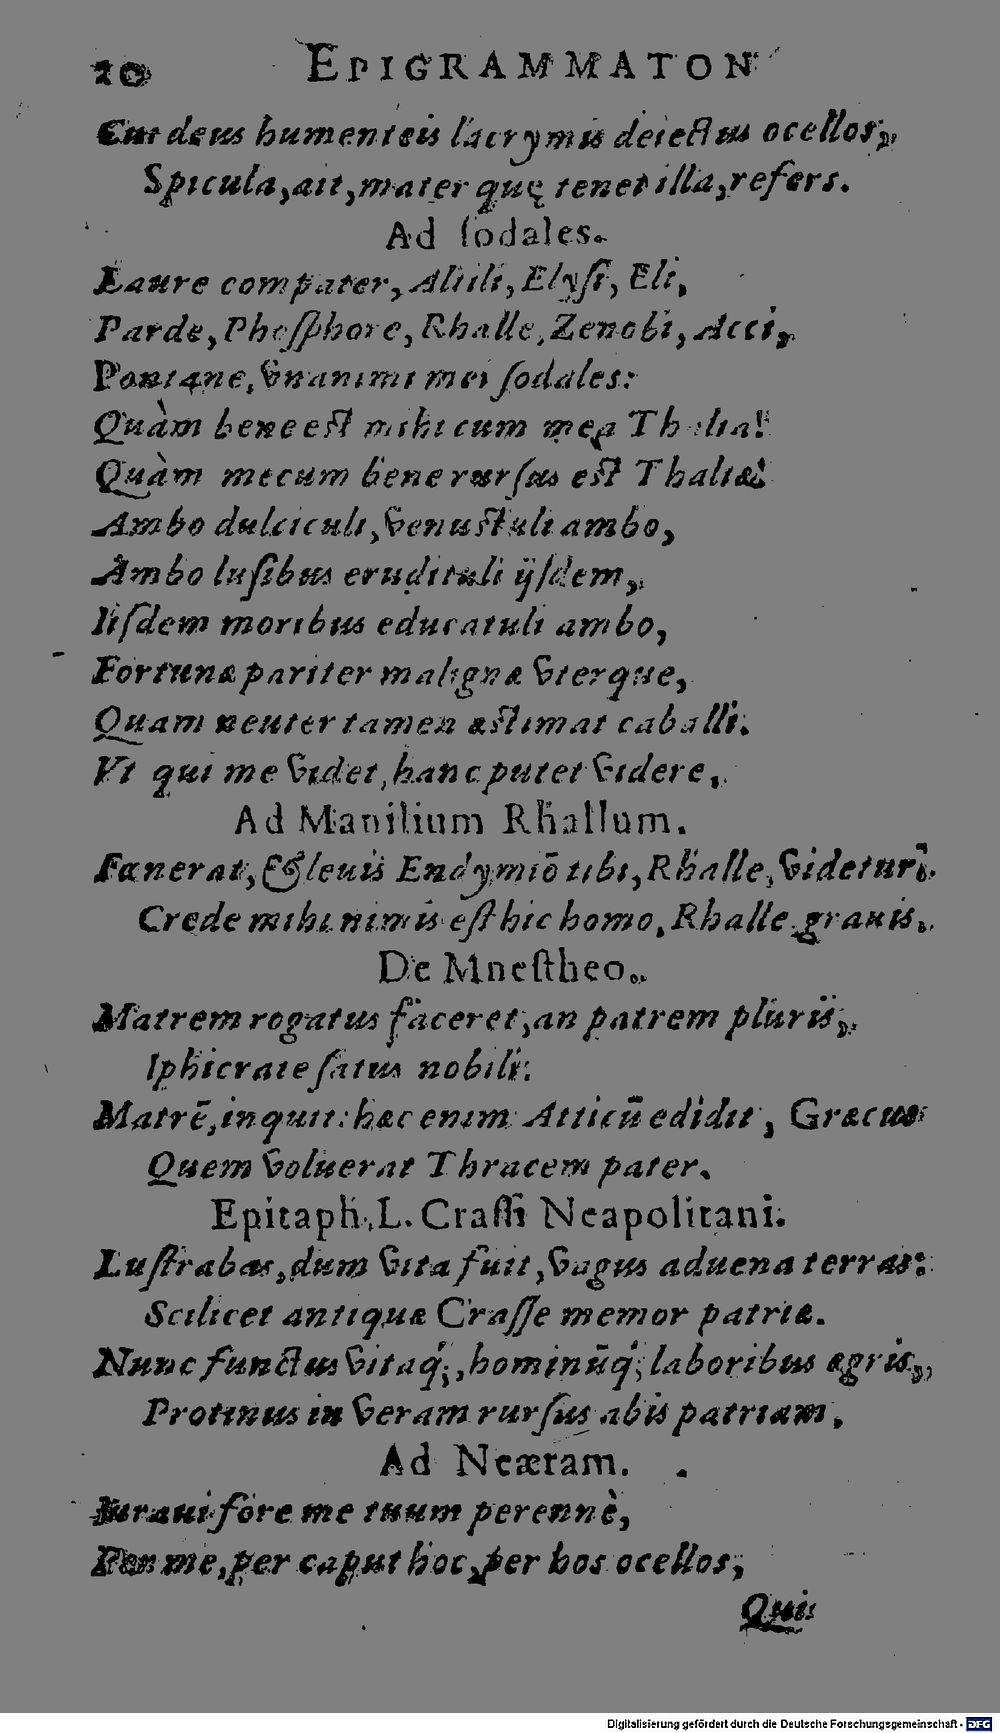 20 EPIGRAMMATON
Cui deus humenteis lacrymis deiectus ocellos,
Spicula, ait, mater quę tenet illa, refers.
Ad ſodales.
Laure compater, Aliili, Elyſi, Eli,
Parde, Phoſphore, Rhalle, Zenobi, Acci,
Pontane, vnanimi mei ſodales:
Quàm bene est mihi cum mea Thalia!
Quàm mecum bene rurſus est Thaliæ!
Ambo dulciculi, venustuli ambo,
Ambo luſibus erudituli ijſdem,
Iiſdem moribus educatuli ambo,
Fortunæ pariter malignæ vterque,
Quam neuter tamen æstimat caballi.
Vt qui me videt, hanc putet videre.
Ad Manilium Rhallum.
Fænerat, & leuis Endymiō tibi, Rhalle, videtur?
Crede mihi nimis eſt hic homo, Rhalle grauis.
De Mneſtheo.
Matrem rogatus faceret, an patrem pluris,
Iphicrate ſatus nobili:
Matrē, inquit: hæc enim Atticū edidit, Græcus
Quem voluerat Thracem pater.
Epitaph. L. Craſſi Neapolitani.
Luſtrabas, dum vita fuit, vagus aduena terras:
Scilicet antiquæ Craſſe memor patriæ.
Nunc functus vitaq;, hominūq; laboribus ægris,
Protinus in veram rurſus abis patriam.
Ad Neæram.
Iuraui fore me tuum perennè,
Per me, per caput hoc, per hos ocellos,
Quis
Digitalisierung gefördert durch die Deutsche Forschungsgemeinschaft - DFG